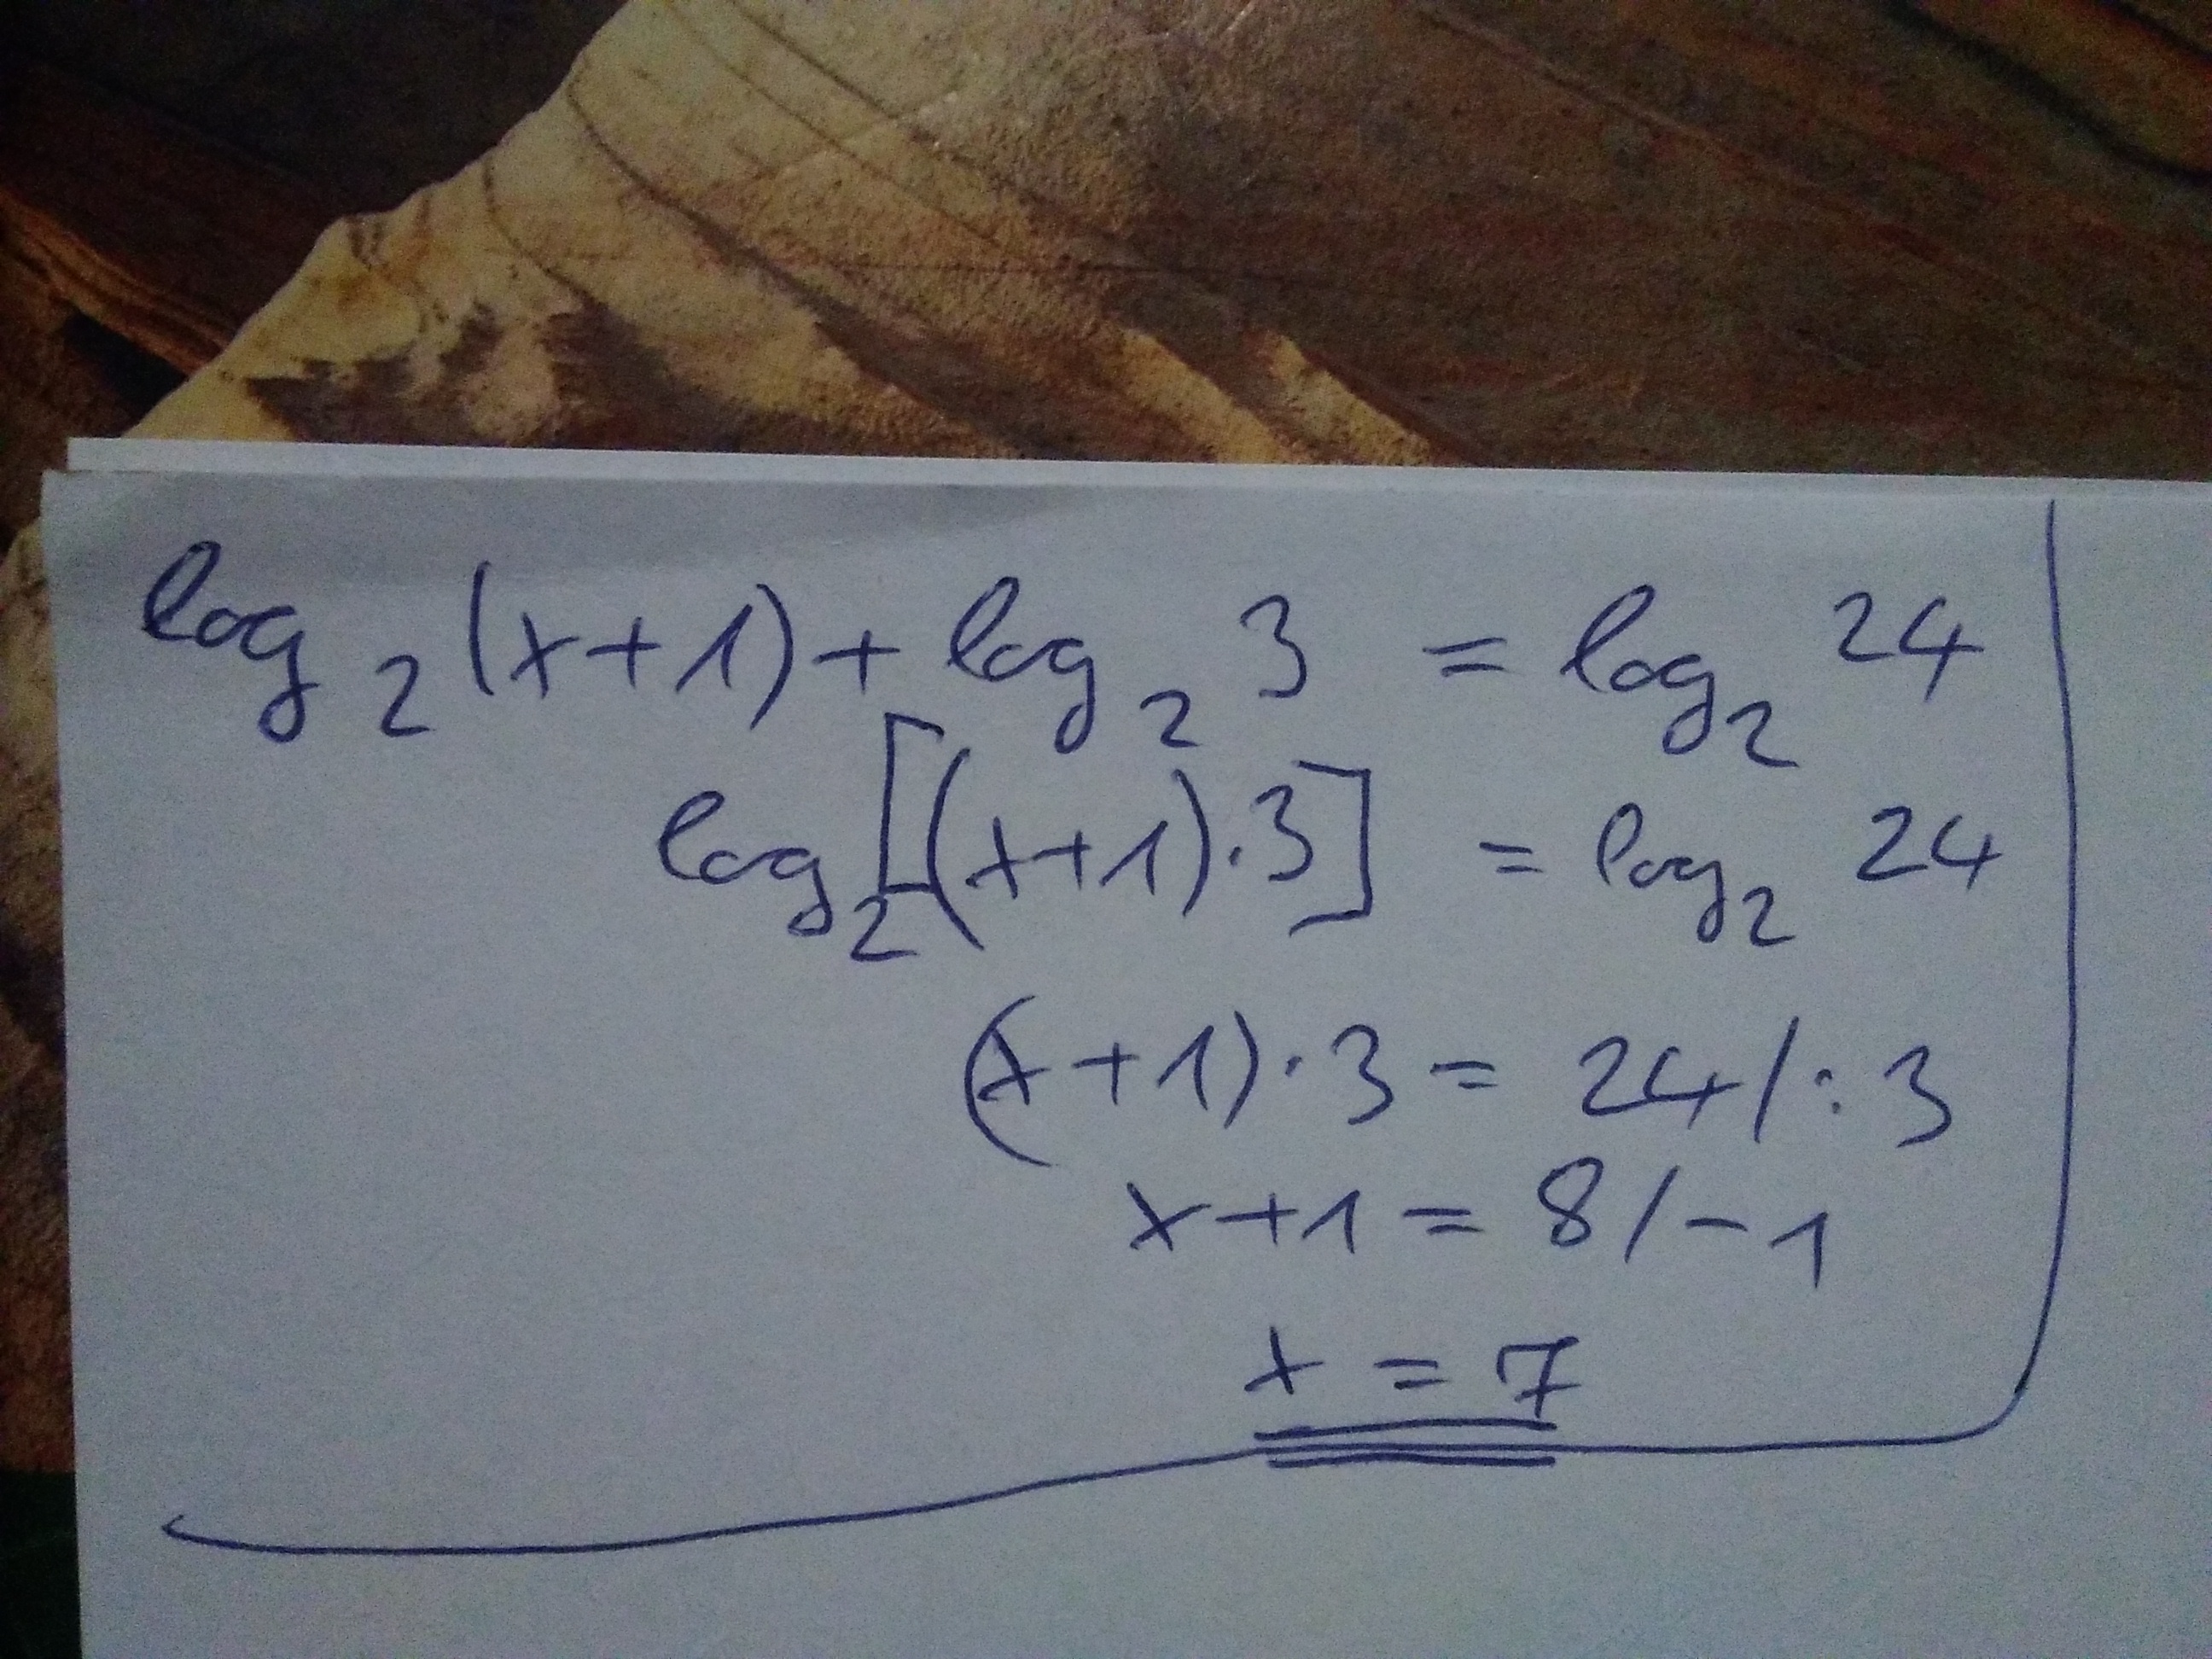 log₂(x+1)+log₂ 3 = log₂ 24
log₂[(x+1)·3] = log₂ 24
(x+1)·3 = 24 /:3
x+1 = 8 /-1
x = 7